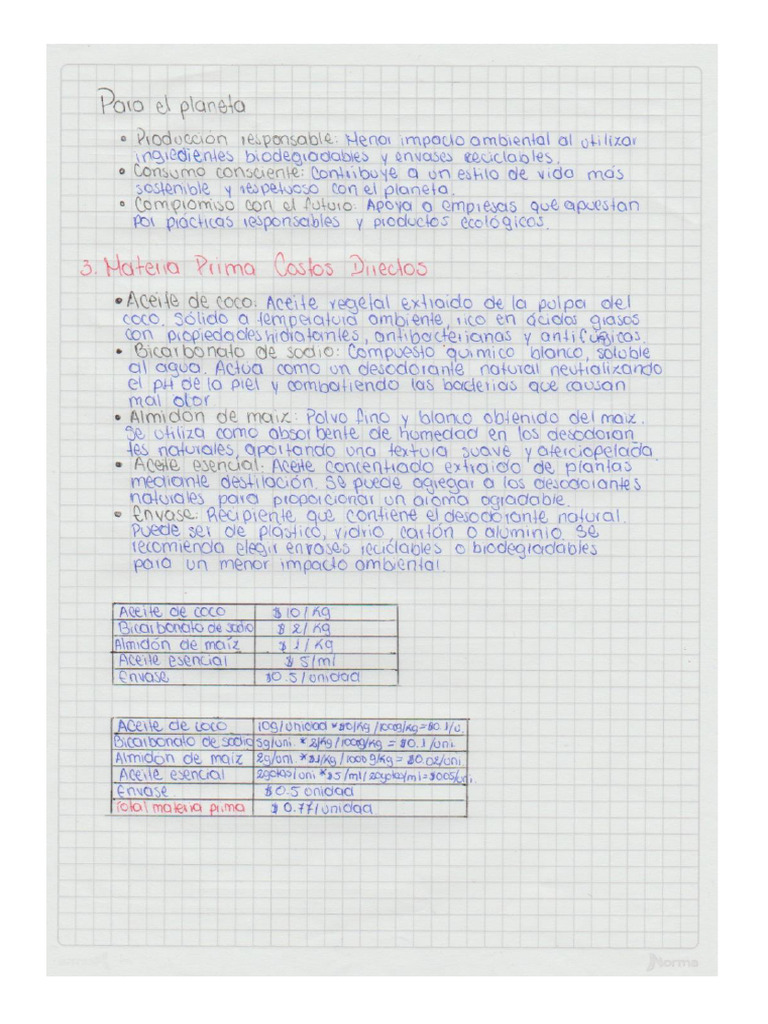 Para el planeta
• Producción responsable: Menor impacto ambiental al utilizar
ingredientes biodegradables y envases reciclables.
• Consumo consciente: Contribuye a un estilo de vida más
sostenible y respetuoso con el planeta.
• Compromiso con el futuro: Apoya a empresas que apuestan
por prácticas responsables y productos ecológicos.
3. Materia Prima Costos Directos
• Aceite de coco: Aceite vegetal extraido de la pulpa del
coco. Sólido a temperatura ambiente, rico en ácidos grasos
con propiedades hidratantes, antibacterianas y antifúngicas.
• Bicarbonato de sodio: Compuesto quimico blanco, soluble
al agua. Actua como un desodorante natural neutralizando
el pH de la piel y combatiendo las bacterias que causan
mal olor
• Almidón de maiz: Polvo fino y blanco obtenido del maiz.
Se utiliza como absorbente de humedad en los desodoran
tes naturales, aportando una textura suave y aterciopelada.
• Aceite esencial: Aceite concentrado extraido de plantas
mediante destilación. Se puede agregar a los desodorantes
naturales para proporcionar un aroma agradable.
• Envase: Recipiente que contiene el desodorante natural.
Puede ser de plástico, vidrio, cartón o aluminio. Se
recomienda elegir envases reciclables o biodegradables
para un menor impacto ambiental.
Aceite de coco $10/Kg
Bicarbonato de sodio $2/Kg
Almidón de maíz $1/Kg
Aceite esencial $5/ml
Envase $0.5/unidad
Aceite de coco 10g/unidad * $10/Kg/1000g/Kg=$0.1/u.
Bicarbonato de sodio 5g/uni. * 2/Kg/1000g/Kg = $0.1/uni.
Almidón de maiz 2g/uni. * $1/Kg/1000g/Kg = $0.02/uni.
Aceite esencial 2gotas/uni * $5/ml/20gotas/ml=$005/uni.
Envase $0.5 unidad
Total materia prima $0.77/unidad
Norma